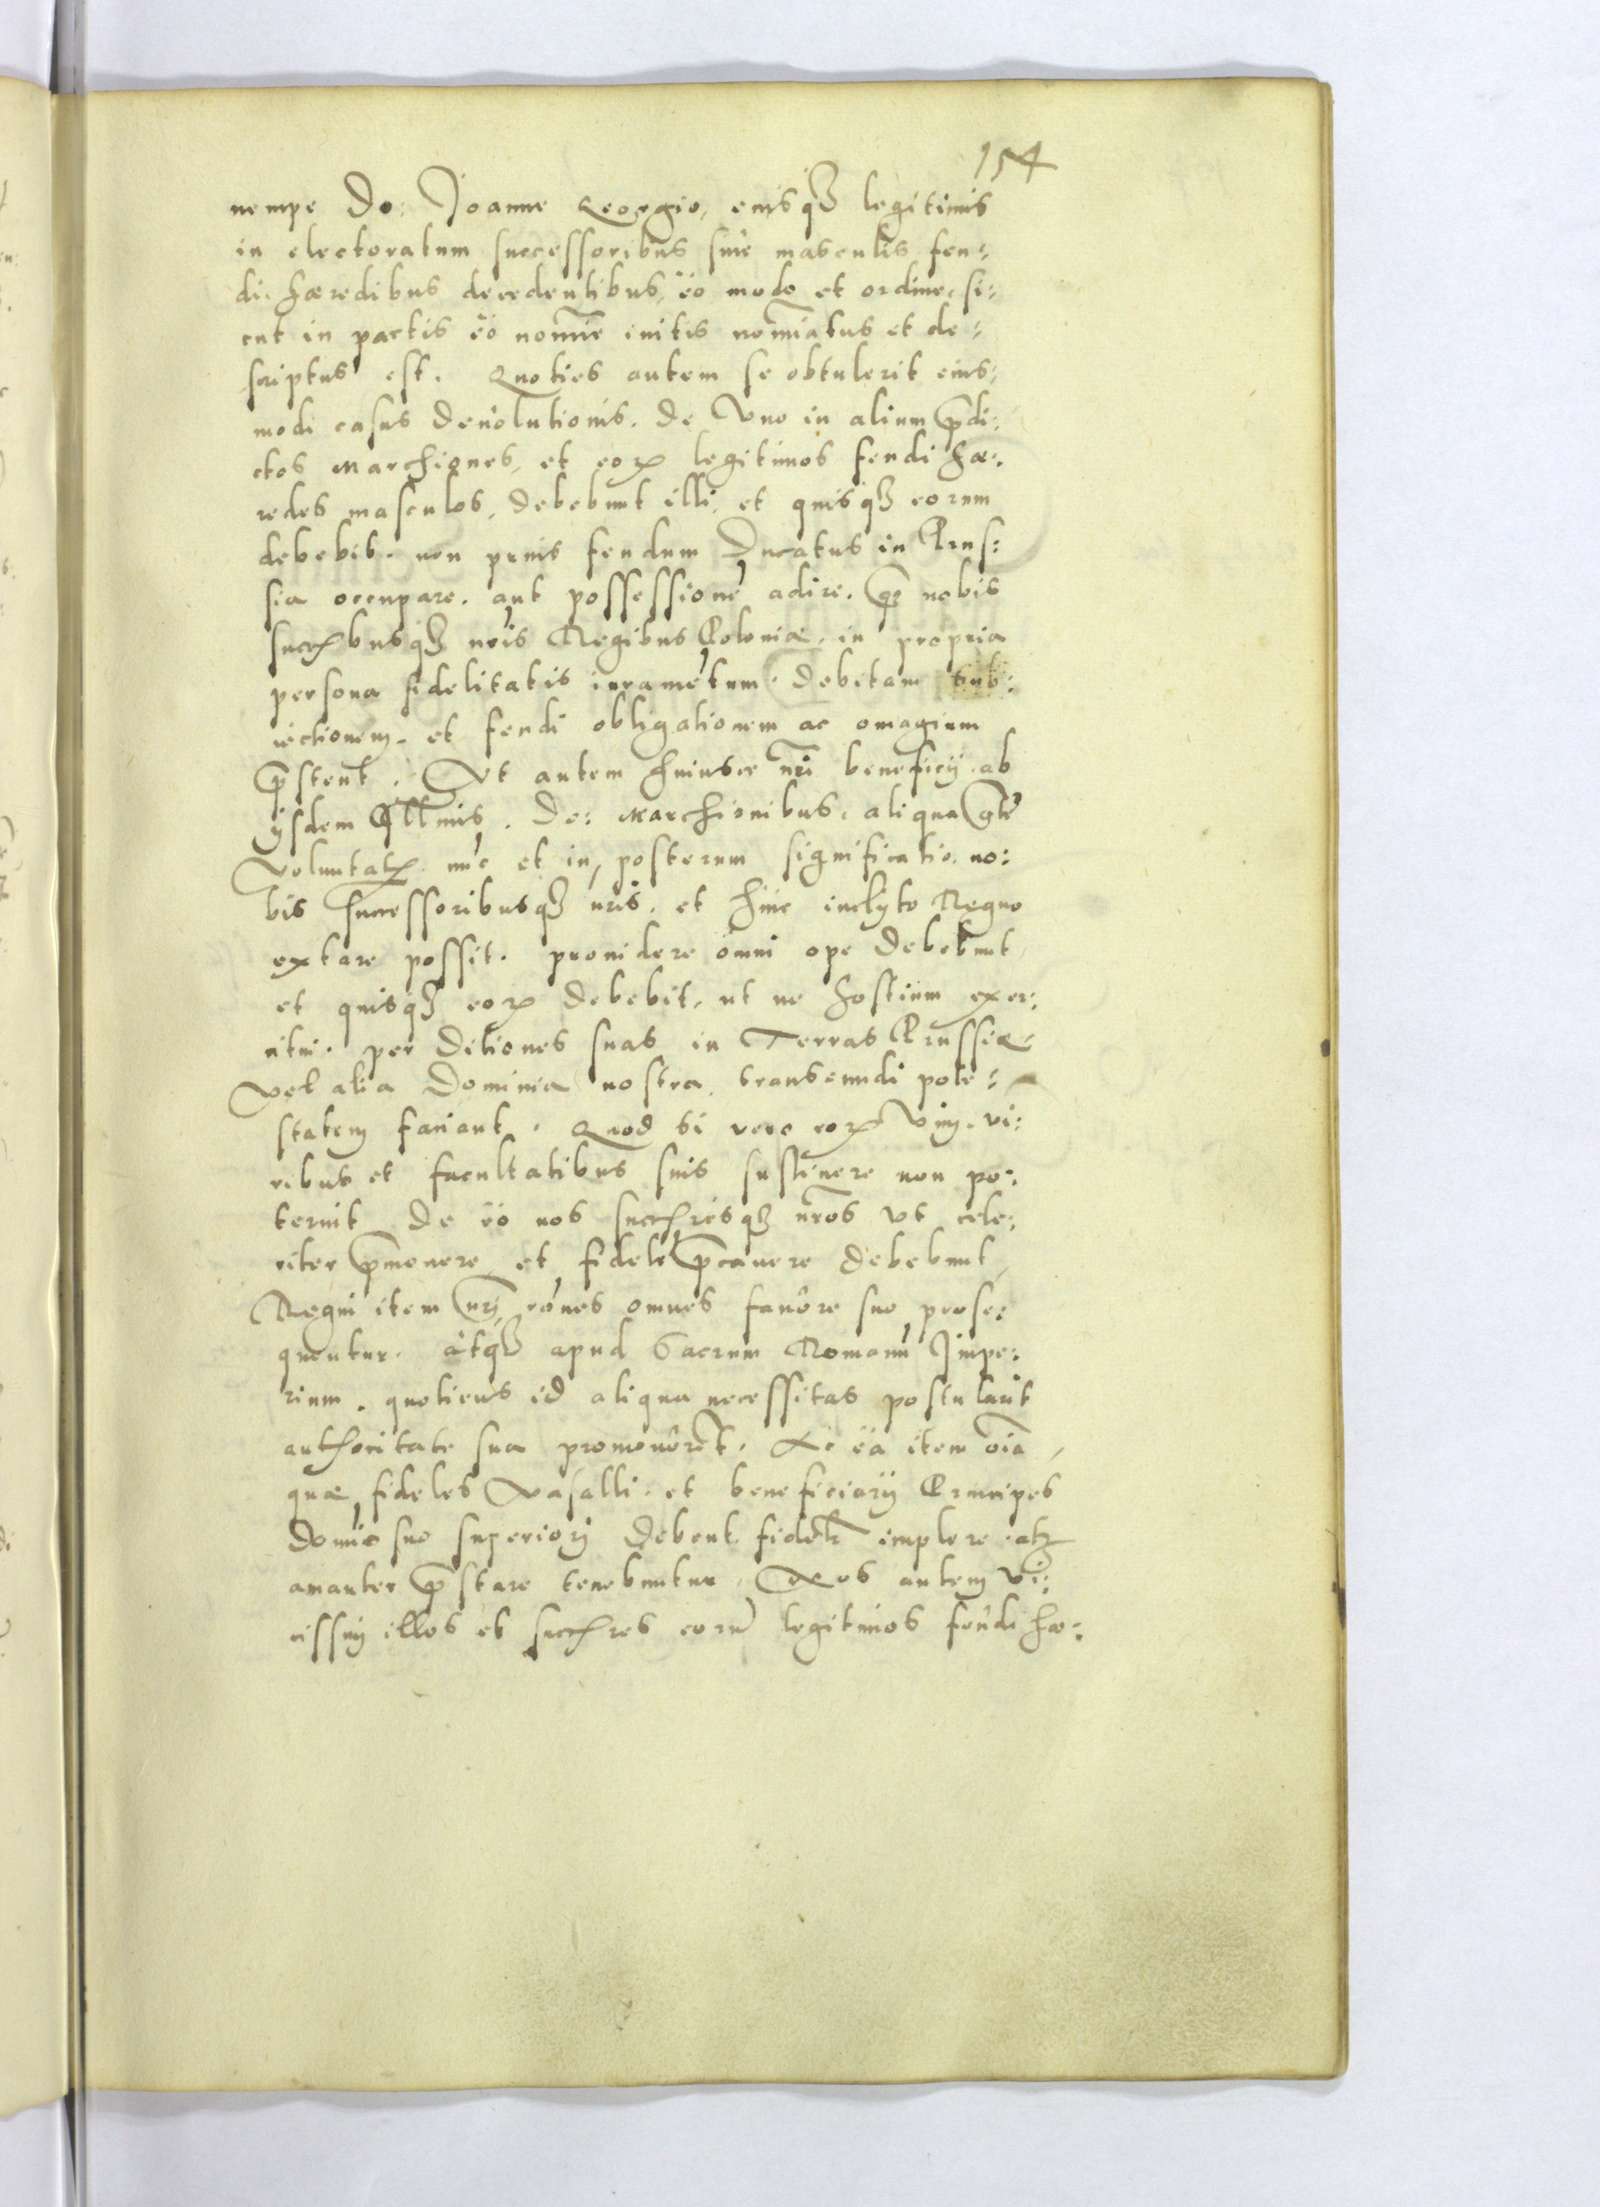 154
nempe Do: Joanne Georgio, eiusq₃ legitimis
in electoratum successoribus sine masculis feu=
di hæredibus decedentibus, eo modo et ordine, si=
cut in pactis eo nomīe initis nomīatus et de=
scriptus est. Quoties autem se obtulerit eius=
modi casus deuolutionis, de vno in alium p̄di=
ctos Marchiones, et eoꝝ legitimos feudi hæ=
redes masculos, debebunt illi, et quisq₃ eorum
debebit, non prius feudum Ducatus in Prus=
sia occupare, aut possessionē adire, q̄ nobis
succribusq₃ nr̄is Regibus Poloniæ, in propria
persona fidelitatis iuramētum, debitam sub=
iectionem, et feudi obligationem ac omagium
p̄stent. Vt autem huiusce nr̄i beneficij ab
ijsdem Illmis. Do: Marchionibus, aliqua gtē
voluntatꝭ nūc et in posterum significatio, no=
bis successoribusq₃ nr̄is, et huic inclyto Regno
extare possit, prouidere omni ope debebunt
et quisq₃ eoꝝ debebit, ut ne hostium exer=
citui, per ditiones suas in Terras Prussiæ
vel alia Dominia nostra, transeundi pote=
statem faciant. Quod si vero eoꝝ vim, vi=
ribus et facultatibus suis sustinere non po=
terint de eo nos succresq₃ nr̄os vt cele=
riter p̄monere et fidelr̄ p̄cauere debebunt,
Regni item nr̄j rōnes omnes fauore suo prose=
quentur, atq₃ apud Sacrum Romanū Impe=
rium, quotiens id aliqua necessitas postularit
authoritate sua promouebt. Ac ea item oīa,
quæ fideles Vasalli, et beneficiarij Principes
Domīo suo superiorj debent fidelr̄ implere atq₃
amanter p̄stare tenebuntur. Nos autem vi=
cissim illos et succres eorū legitimos feudi hæ=